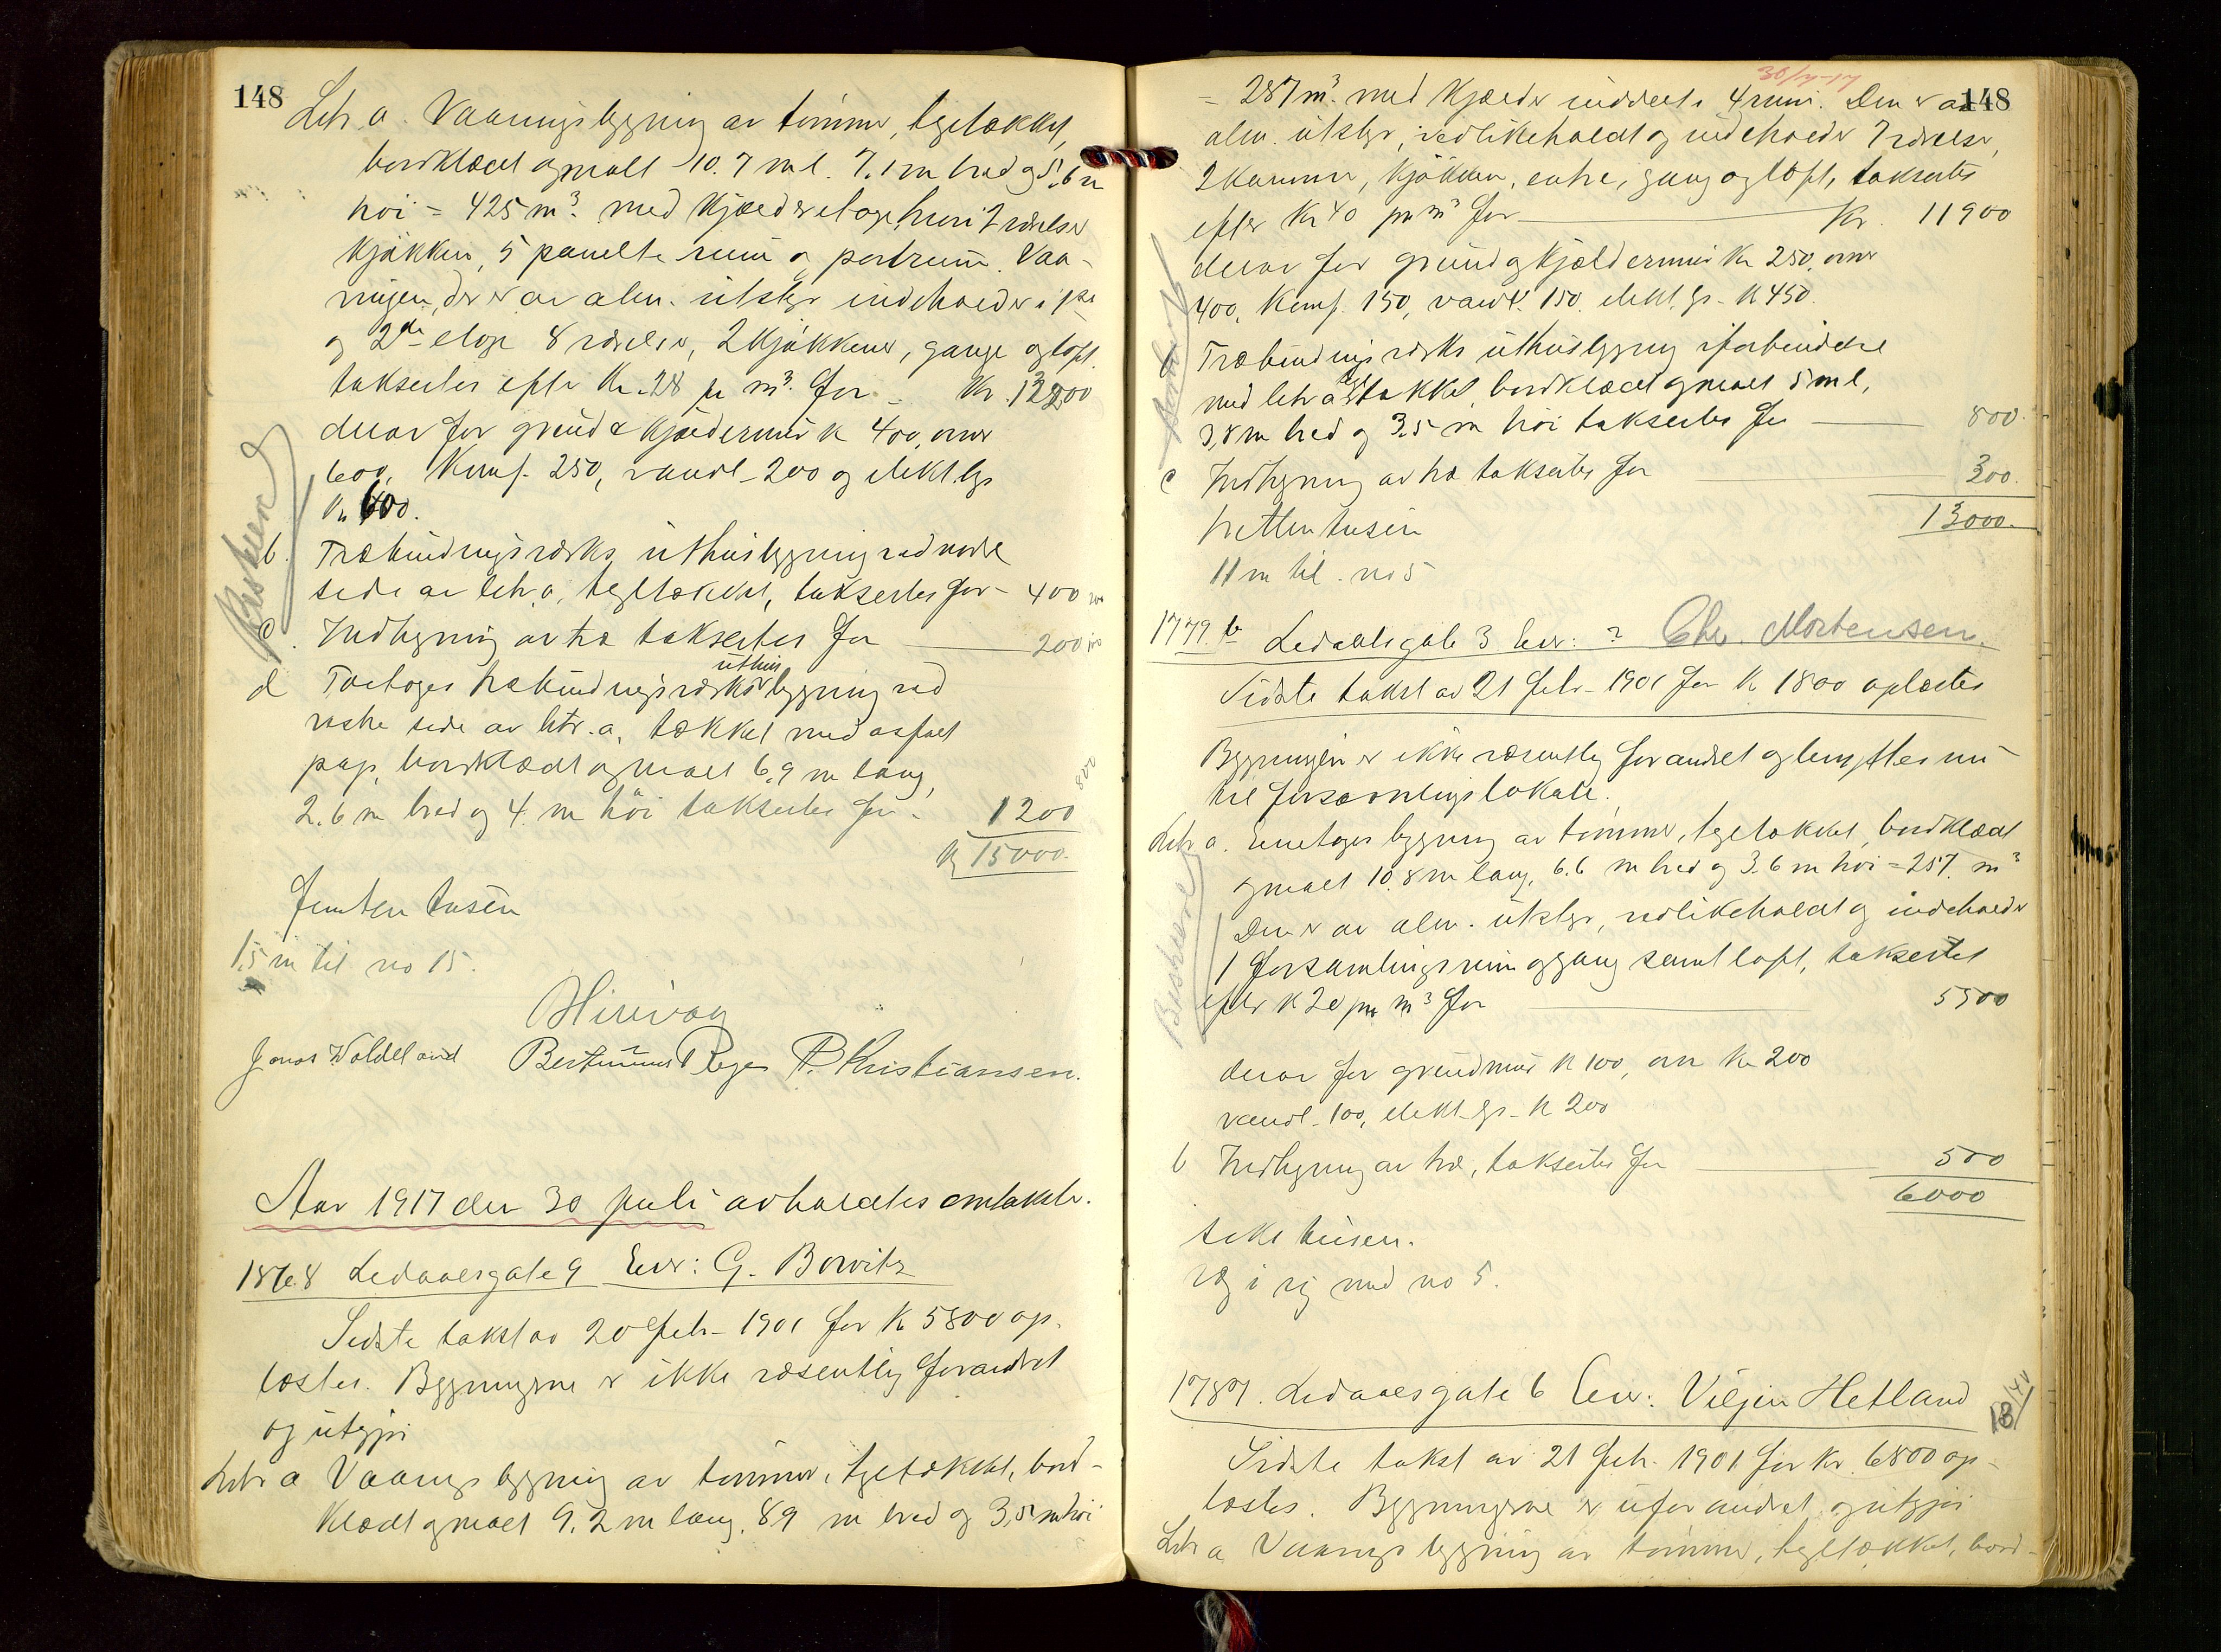 148
Litr. a. Vaaningsbygning av tømmer, tegltækket,
bordklædt og malt 10.7 m l. 7.1 m bred og 5,6 m
høi = 425 m³. med kjælderetage hvori 2 værelser
kjøkken, 5 panelte rum og portrum. Vaa-
ningen, der er av alm. utstyr indeholder i 1ste
og 2den etage 8 værelser, 2 kjøkkener, gange og loft.
takseertes efter Kr. 28 pr m³. for - Kr. 13200
derav for grund & kjældermur k 400, ovner
600, Komf. 250, vandl. 200 og elekt. lys
Kr 600.
b. Træbindingsverks uthusbygning ved nordre
side av litr. a, tegltækket, takseertes for - 400
c. Indhegning av træ takseertes for 200
uthus
d Toetages træbindingsverks bygning ved
vestre side av litr. a, tækket med asfalt
pap, bordklædt og malt 6,9 m lang,
2.6 m bred og 4. m høi takseertes for - 1200
800
K 15000.
Femten tusen
15 m til no 15.
Hinivaag
Jonas Waldeland P. Kristiansen.
Aar 1917 den 30 juli avholdtes omtakst.
1868 Ledaalsgate 9 Eier: G. Bowitz
Sidste takst av 20 feb. 1901 for K 5800 op-
læstes. Bygningerne er ikke væsentlig forandret
og utgjør
Litr a Vaaningsbygning av tømmer, tegltækket, bord-
klædt og malt 9.2 m lang. 8.9 m bred og 3,5 m høi
30/7-17
148
= 287 m³. med kjælder inddelt i 4 rum. Den er av
alm. utstyr, vedlikeholdt og indeholder 7 værelser,
2 kammer, kjøkken, entre, gang og loft, takseertes
efter Kr 40 pr m³ for Kr. 11900
derav for grund og kjældermur Kr 250, ovner
400, Komf. 150, vandl. 150. elekt. lys - K 450.
b Træbindingsverks uthusbygning i forbindelse
med litr a tegltækket, bordklædt og malt 5 m l,
3,8 m bred og 3.5 m høi takseertes for 800.
c Indhegning av træ takseertes for 300.
13000.
tretten tusen
11 m til no 5
1779 b Ledaalsgate 3 Eier: ? Chr. Mortensen.
Sidste takst av 21 feb. 1901 for K 1800 oplæstes
Bygningen er ikke væsentlig forandret og benyttes nu
til forsamlingslokale.
Litr a. Enetages bygning av tømmer, tegltækket, bordklædt
og malt 10.8 m lang, 6.6 m bred og 3.6 m høi = 257. m³
Den er av alm. utstyr, vedlikeholdt og indeholder
1 forsamlingsrum og gang samt loft, takseertes
efter K 20 pr m³ for 5500
derav for grundmur K 100, ovn Kr 200
vandl. 100, elekt. lys - K 200
b Indhegning av træ, takseertes for 500
6000
seks tusen.
væg i væg med no 5.
1787. Ledaalsgate 6 Eier: Viljen Hetland
Sidste takst av 21 feb. 1901 for Kr. 6800 op-
læstes. Bygningerne er uforandret og utgjør
Litr a Vaaningsbygning av tømmer, tegltækket, bord-